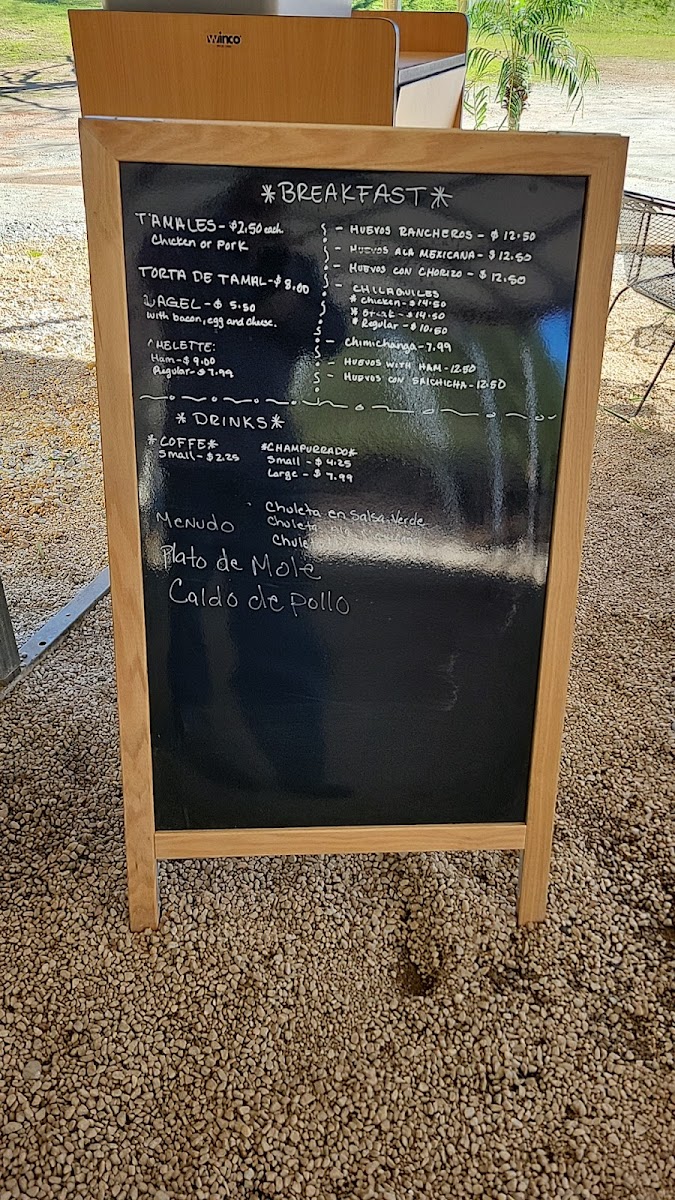 winco
*BREAKFAST*
TAMALES - $2.50 each
Chicken or Pork
TORTA DE TAMAL - $8.00
BAGEL - $ 5.50
with bacon, egg and cheese.
OMELETTE:
Ham - $ 9.00
Regular - $ 7.99
- HUEVOS RANCHEROS - $ 12.50
- HUEVOS ALA MEXICANA - $ 12.50
- HUEVOS CON CHORIZO - $ 12.50
- CHILAQUILES
* Chicken - $ 14.50
* Steak - $ 14.50
* Regular - $ 10.50
- Chimichanga - 7.99
- HUEVOS WITH HAM - 12.50
- HUEVOS CON SALCHICHA - 12.50
*DRINKS*
*COFFE*
Small - $2.25
*CHAMPURRADO*
Small - $ 4.25
Large - $ 7.99
Menudo
Chuleta en Salsa Verde
Chuleta
Chuleta
Plato de Mole
Caldo de pollo